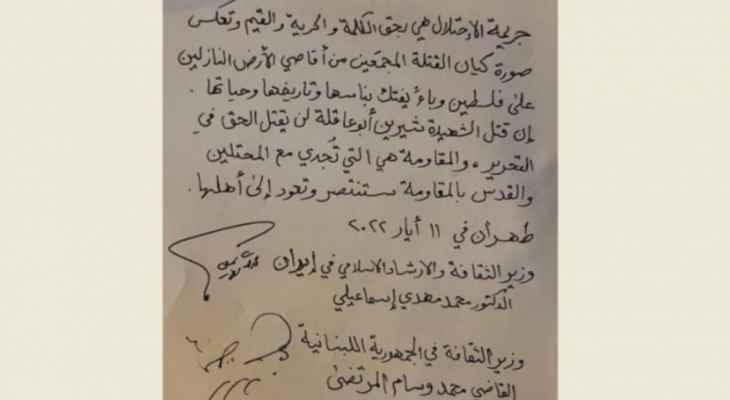 جريمة الإحتلال هي بحق الكلمة والحرية والقيم وتعكس
صورة كيان القتلة المجتمعين من أقاصي الأرض النازلين
على فلسطين وباءً يفتك بناسها وتاريخها وحياتها .
إن قتل الشهيدة شيرين أبو عاقلة لن يقتل الحق في
التحرير، والمقاومة هي التي تُجدي مع المحتلين
والقدس بالمقاومة ستنتصر وتعود إلى أهلها .
طهران في ١١ أيار ٢٠٢٢
وزير الثقافة والارشاد الاسلامي في إيران
الدكتور محمد مهدي إسماعيلي
وزير الثقافة في الجمهورية اللبنانية
القاضي محمد وسام المرتضى